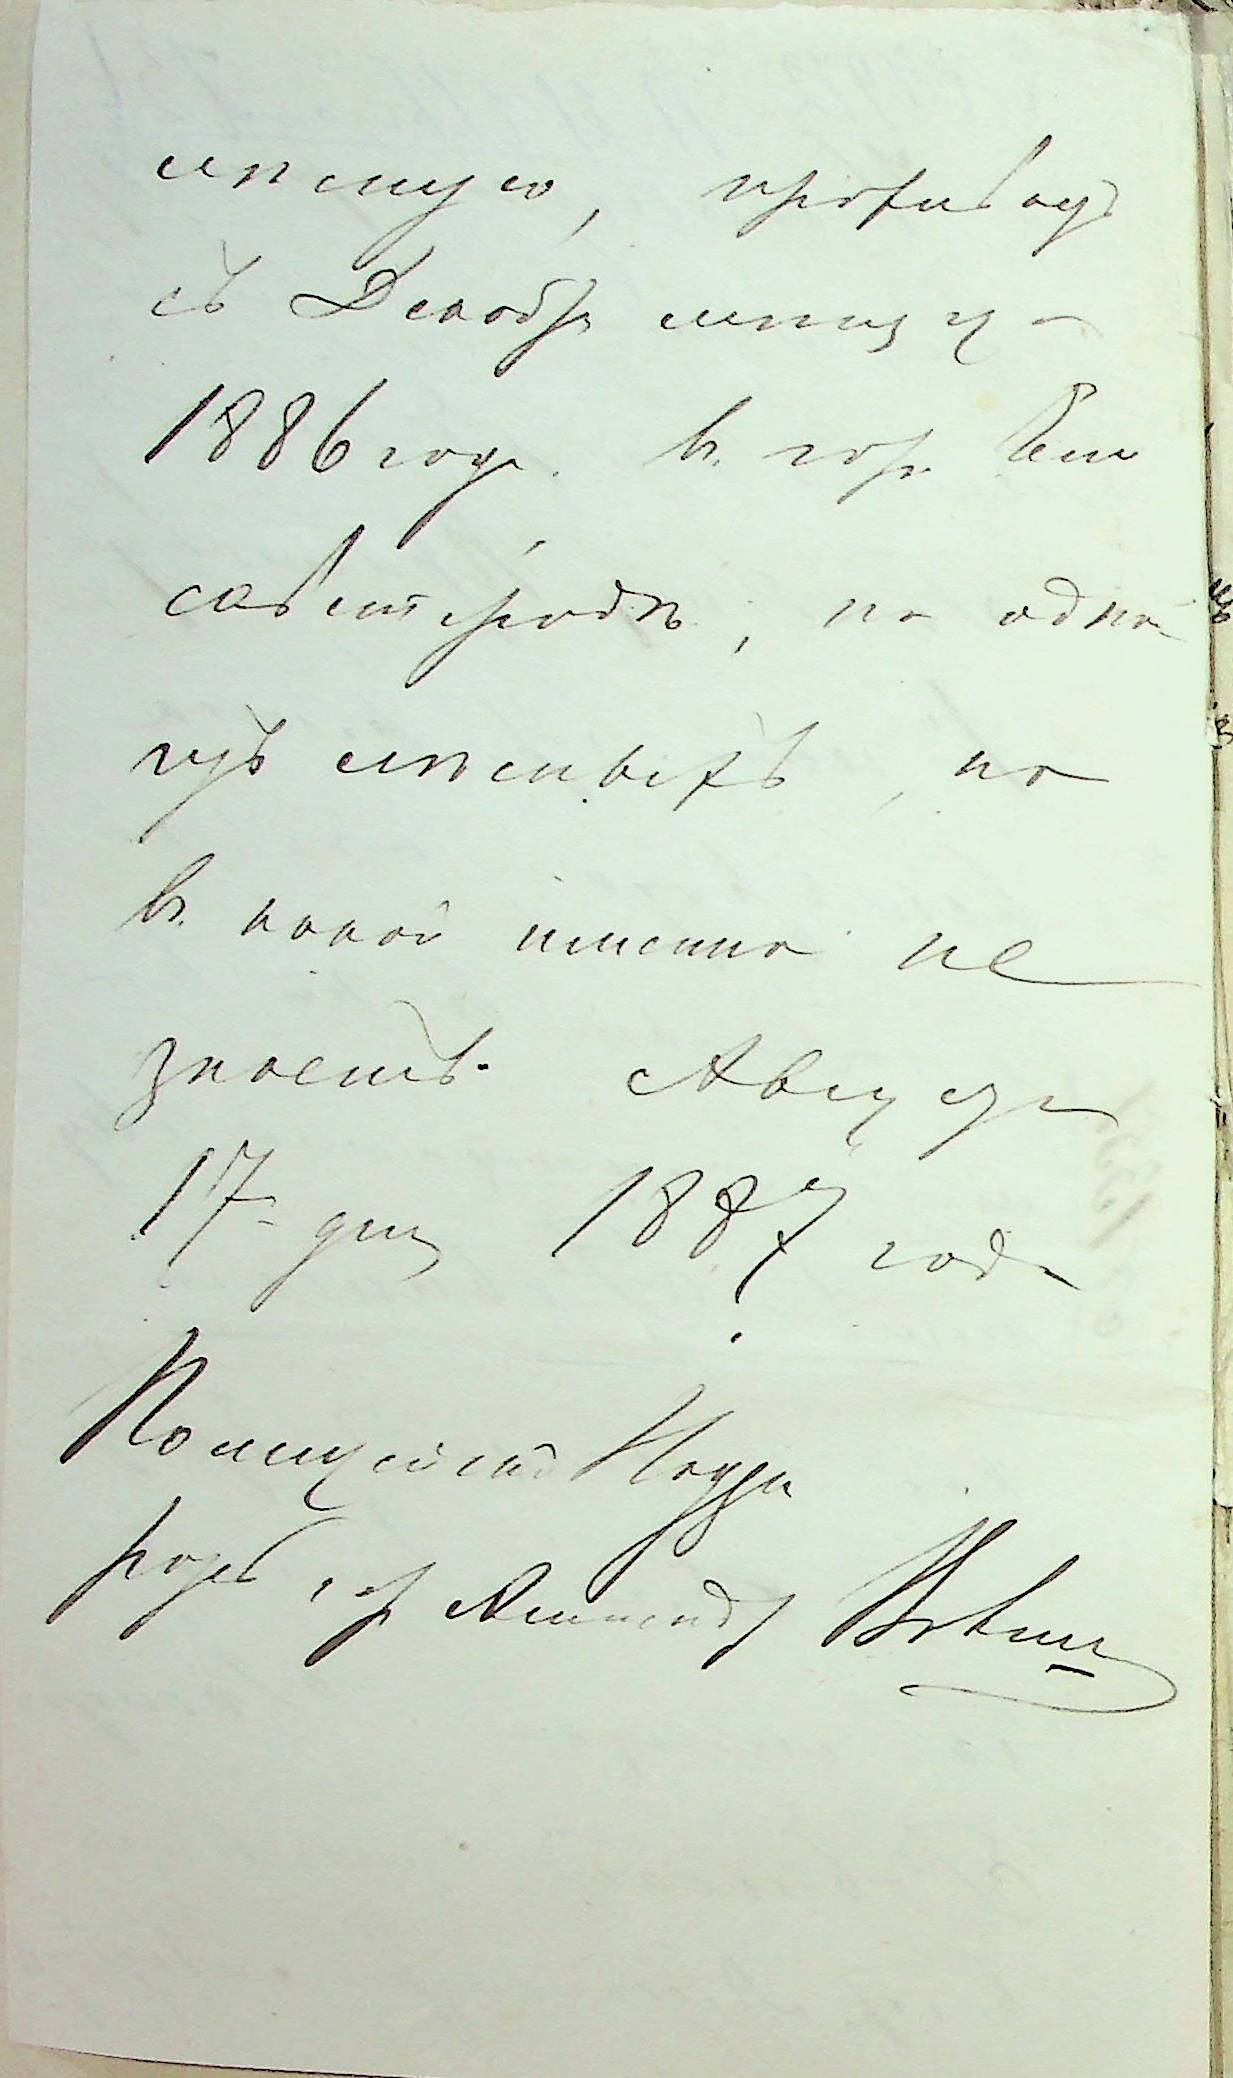 скую, проживаетъ
съ Декабря месяца
1886 года въ гор. Ели
саветградѣ, на одной
изъ , но
въ какой именно не
знаетъ. Августа
17 дня 1887 года
Полицейскій Надзи
ратель, Александр